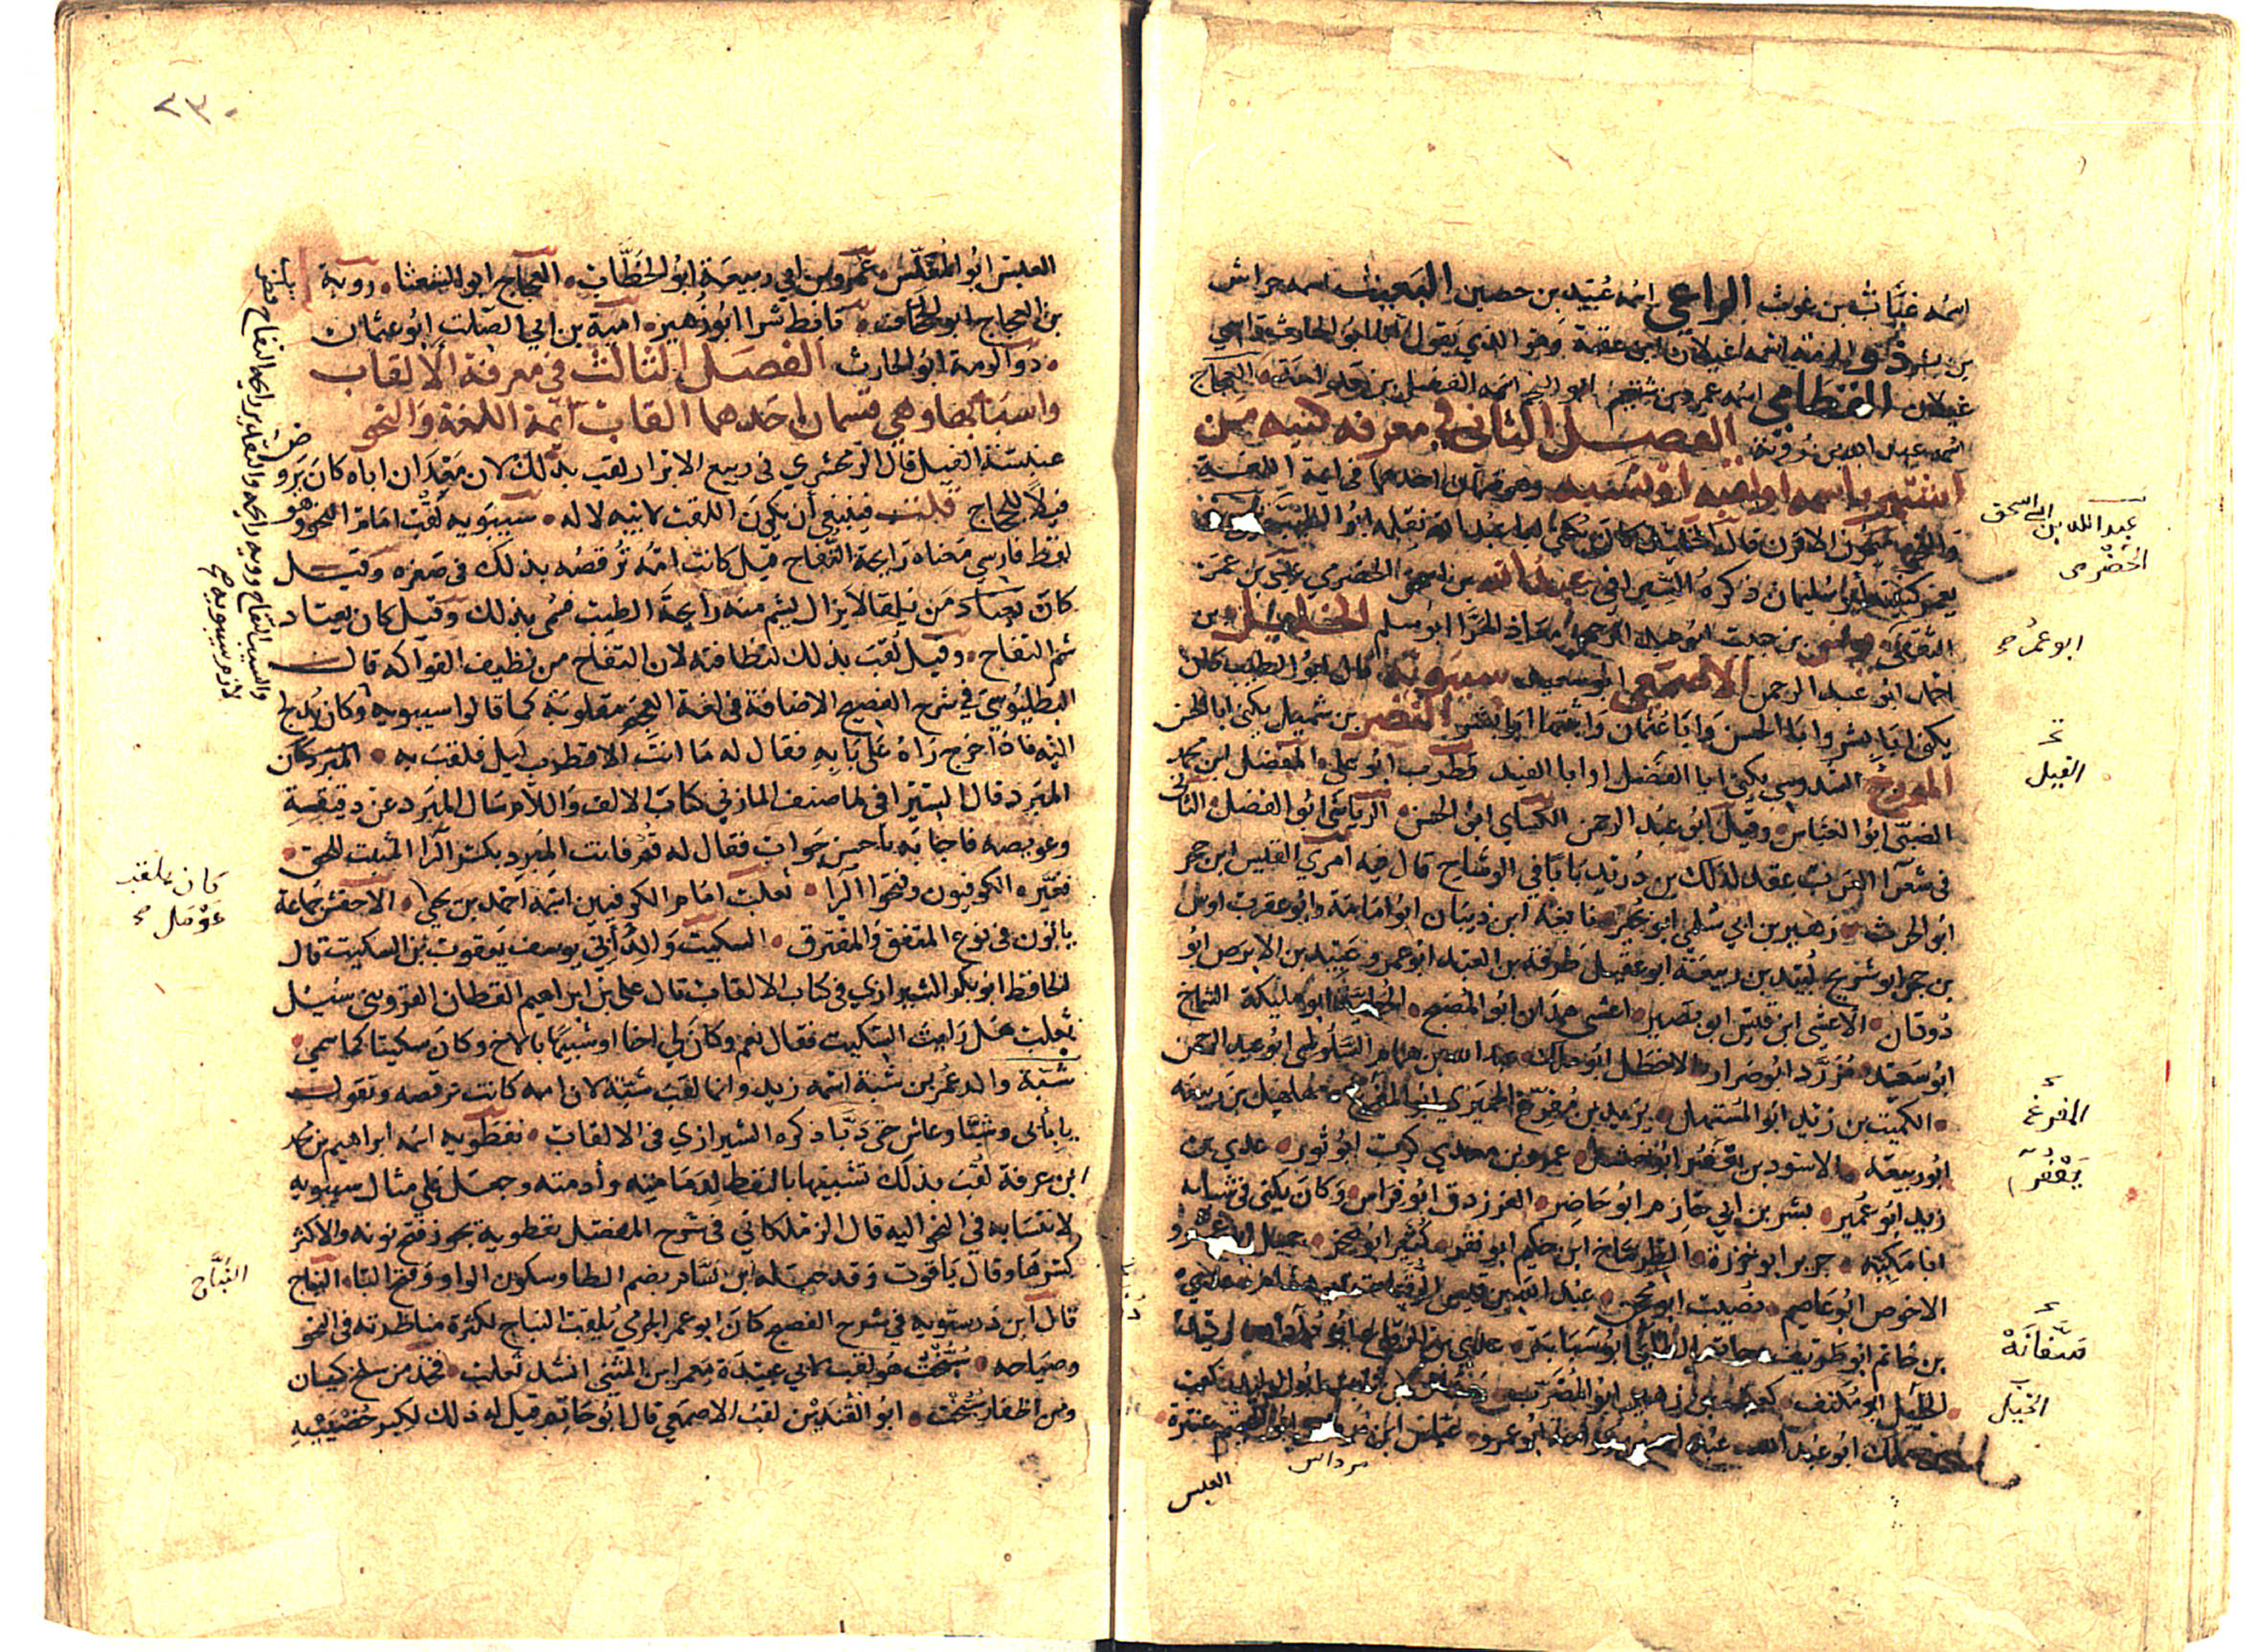 اسمه غياث بن غوث الراعي اسمه عُبيد بن حصين البعيث اسمه خراش
بن بشر ذو الرمة اسمه غيلان ابن عقبة وهو الذي يقول انا ابو الحارث واسمي
غيلان القطامي اسمه عمرو بن شييم ابو النجم اسمه الفضل بن قدامة العجاج
اسمه عبد الله بن روبة الفصل الثاني في معرفة كنيه من
اشتهر باسمه او لقبه او نسبه وهو قسمان احدهما في ائمة اللغة
والنحو ميمون الاقرن قال الخليل كان يكنى ابا عبد الله نقله ابو الطيب
كنيته ابو سليمان ذكره السيرافي عبد الله بن اسحق الحضرمي عيسى بن عمر
الثقفي يونس بن حبيب ابو عبد الرحمن معاذ الهرا ابو مسلم الخليل بن
احمد ابو عبد الرحمن الاصمعي ابو سعيد سيبويه قال ابو الطيب كان
يكنى ابا بشر وابا الحسن وابا عثمان واثبتها ابو بشر النضر بن شميل يكنى ابا الحسن
المورج السدوسي يكنى ابا الفضل او ابا الفيد قطرب ابو علي المفضل ابن محمد
الضبي ابو العباس وقيل ابو عبد الرحمن الكساي ابو الحسن الرياشي ابو الفضل الثاني
في شعرا العرب عقد لذلك بن دريد بابا في الوشاح قال فيه امري القيس ابن حجر
ابو الحرث زهير بن ابي سُلمى ابو بجير نابغة ابن ذبيان ابو امامة وابو عقرب اوس
بن حجر ابو شريح لبيد بن ربيعة ابو عقيل طرفة بن العبد ابو عمرو عبيد بن الابرص ابو
دودان الاعشى ابن قيس ابو بصير اعشى همدان ابو المصبح الحطيئة ابو مليكة الشماخ
ابو سعيد مُزرّد ابو ضرار الاخطل ابو مالك عبد الله بن همام السلولي ابو عبد الرحمن
الكميت بن زيد ابو المستهل يزيد بن مفرغ الحميري ابو المفرغ مهلهل بن ربيعة
ابو ربيعة الاسود بن يعفر ابو نهشل عمرو بن معدي كرب ابو ثور عدي بن
زيد ابو عُمير بشر بن ابي خازم ابو حاضر الفرزدق ابو فراس وكان يكنى في شبابه
ابا مكية جرير ابو حزرة الطرماح ابن حكيم ابو نفر كُثير ابو صخر جميل ابو عمرو
الاحوص ابو عاصم نُصيب ابو محجن عبد الله بن قيس الرقيات ابو هاشم عدي
بن حاتم ابو طريف حاتم الطائي ابو سفانة عدي بن الرقاع ابو داود
الخيل ابو مُكنف كعب بن زهير ابو المضرب ابو الوليد كعب
بن ملك ابو عبد الله ابو عمرو عباس ابن ابو الهيثم عنترة
عبد الله بن ابي اسحق
الحضرمي
ابو عمر صح
الفيل
المفرغ
يَعْفُر
سَفّانَهْ
الخيل
مرداس
العلس
٢٣٠
العلس ابو المغلّس عمرو بن ابي ربيعة ابو الخطّاب العجاج ابو الشعثا روبة
بن العجاج ابو الجحاف تابط شرا ابو زهير امية بن ابي الصلت ابو عثمان
ذو الرمة ابو الحارث الفصل الثالث في معرفة الالقاب
واسبابها وهي قسمان احدهما القاب ائمة اللغة والنحو
عنبسة الفيل قال الزمخشري في ربيع الابرار لقب بذلك لان معدان اباه كان يروض
فيلاً للحجاج قلت فينبغي ان يكون اللقب لابيه لا له سيبويه لقب امام النحو وهو
لفظ فارسي معناه رايحة التفاح قيل كانت امه ترقصه بذلك في صغره وقيل
كان من يلقاه لا يزال يشم منه رايحة الطيب فسمي بذلك وقيل كان يعتاد
شم التفاح وقيل لقب بذلك لنظافته لان التفاح من نظيف الفواكه قال
البطليوسي في شرح الفصيح الاضافة في لغة العجم مقلوبة كما قالوا سيبويه وكان يدلج
اليه فاذا خرج راه على بابه فقال له ما انت الا قطرب ليل فلقب به المبرد كان
المبرد قال السيرافي لما صنف المازني كتاب الالف واللام سال المبرد عن دقيقه
وعويصه فاجابه باحسن جواب فقال له قم فانت المبرد بكسر الرا المثبت للحق
فغيره الكوفيون وفتحوا الرا ثعلب امام الكوفيين اسمه احمد بن يحيى الاخفش جماعة
ياتون في نوع المتفق والمفترق السكيت والد ابي يوسف يعقوب بن السكيت قال
الحافظ ابو بكر الشيرازي في كتاب الالقاب قال علي بن ابراهيم القطان القزويني سئل
ثعلب هل رايت السكيت فقال نعم وكان لي اخا او شبيها بالاخ وكان سكيتا كما سمي
شبة والد عمر بن شبة اسمه زيد وانما لقب شبة لان امه كانت ترقصه وتقول
يا بابي وشبّا وعاش حتى دَبّا ذكره الشيرازي في الالقاب نفطويه اسمه ابراهيم بن محمد
ابن عرفة لقب بذلك تشبيها بالنفط لدمامته وأدمته وجعل على مثال سيبويه
لانتسابه في النحو اليه قال الزملكاني في شرح المفصل نفطويه يجوز فتح نونه والاكثر
كسرها وقال ياقوت وقد جعله ابن بسام بضم الطا وسكون الواو وفتح اليا النباح
قال ابن درستويه في شرح الفصيح كان ابو عمر الجرمي يلقب النباح لكثرة مناظرته في النحو
وصياحه سُبُّخت هو لقب لابي عبيدة معمر ابن المثنى انشد ثعلب فخذ من سلح كيسان
ومن اظفار سُبُّخت ابو القُندين لقب الاصمعي قال ابو حاتم قيل له ذلك لكبر خصييه
كان يلقب
عَوْمَل صح
النَبَّاح